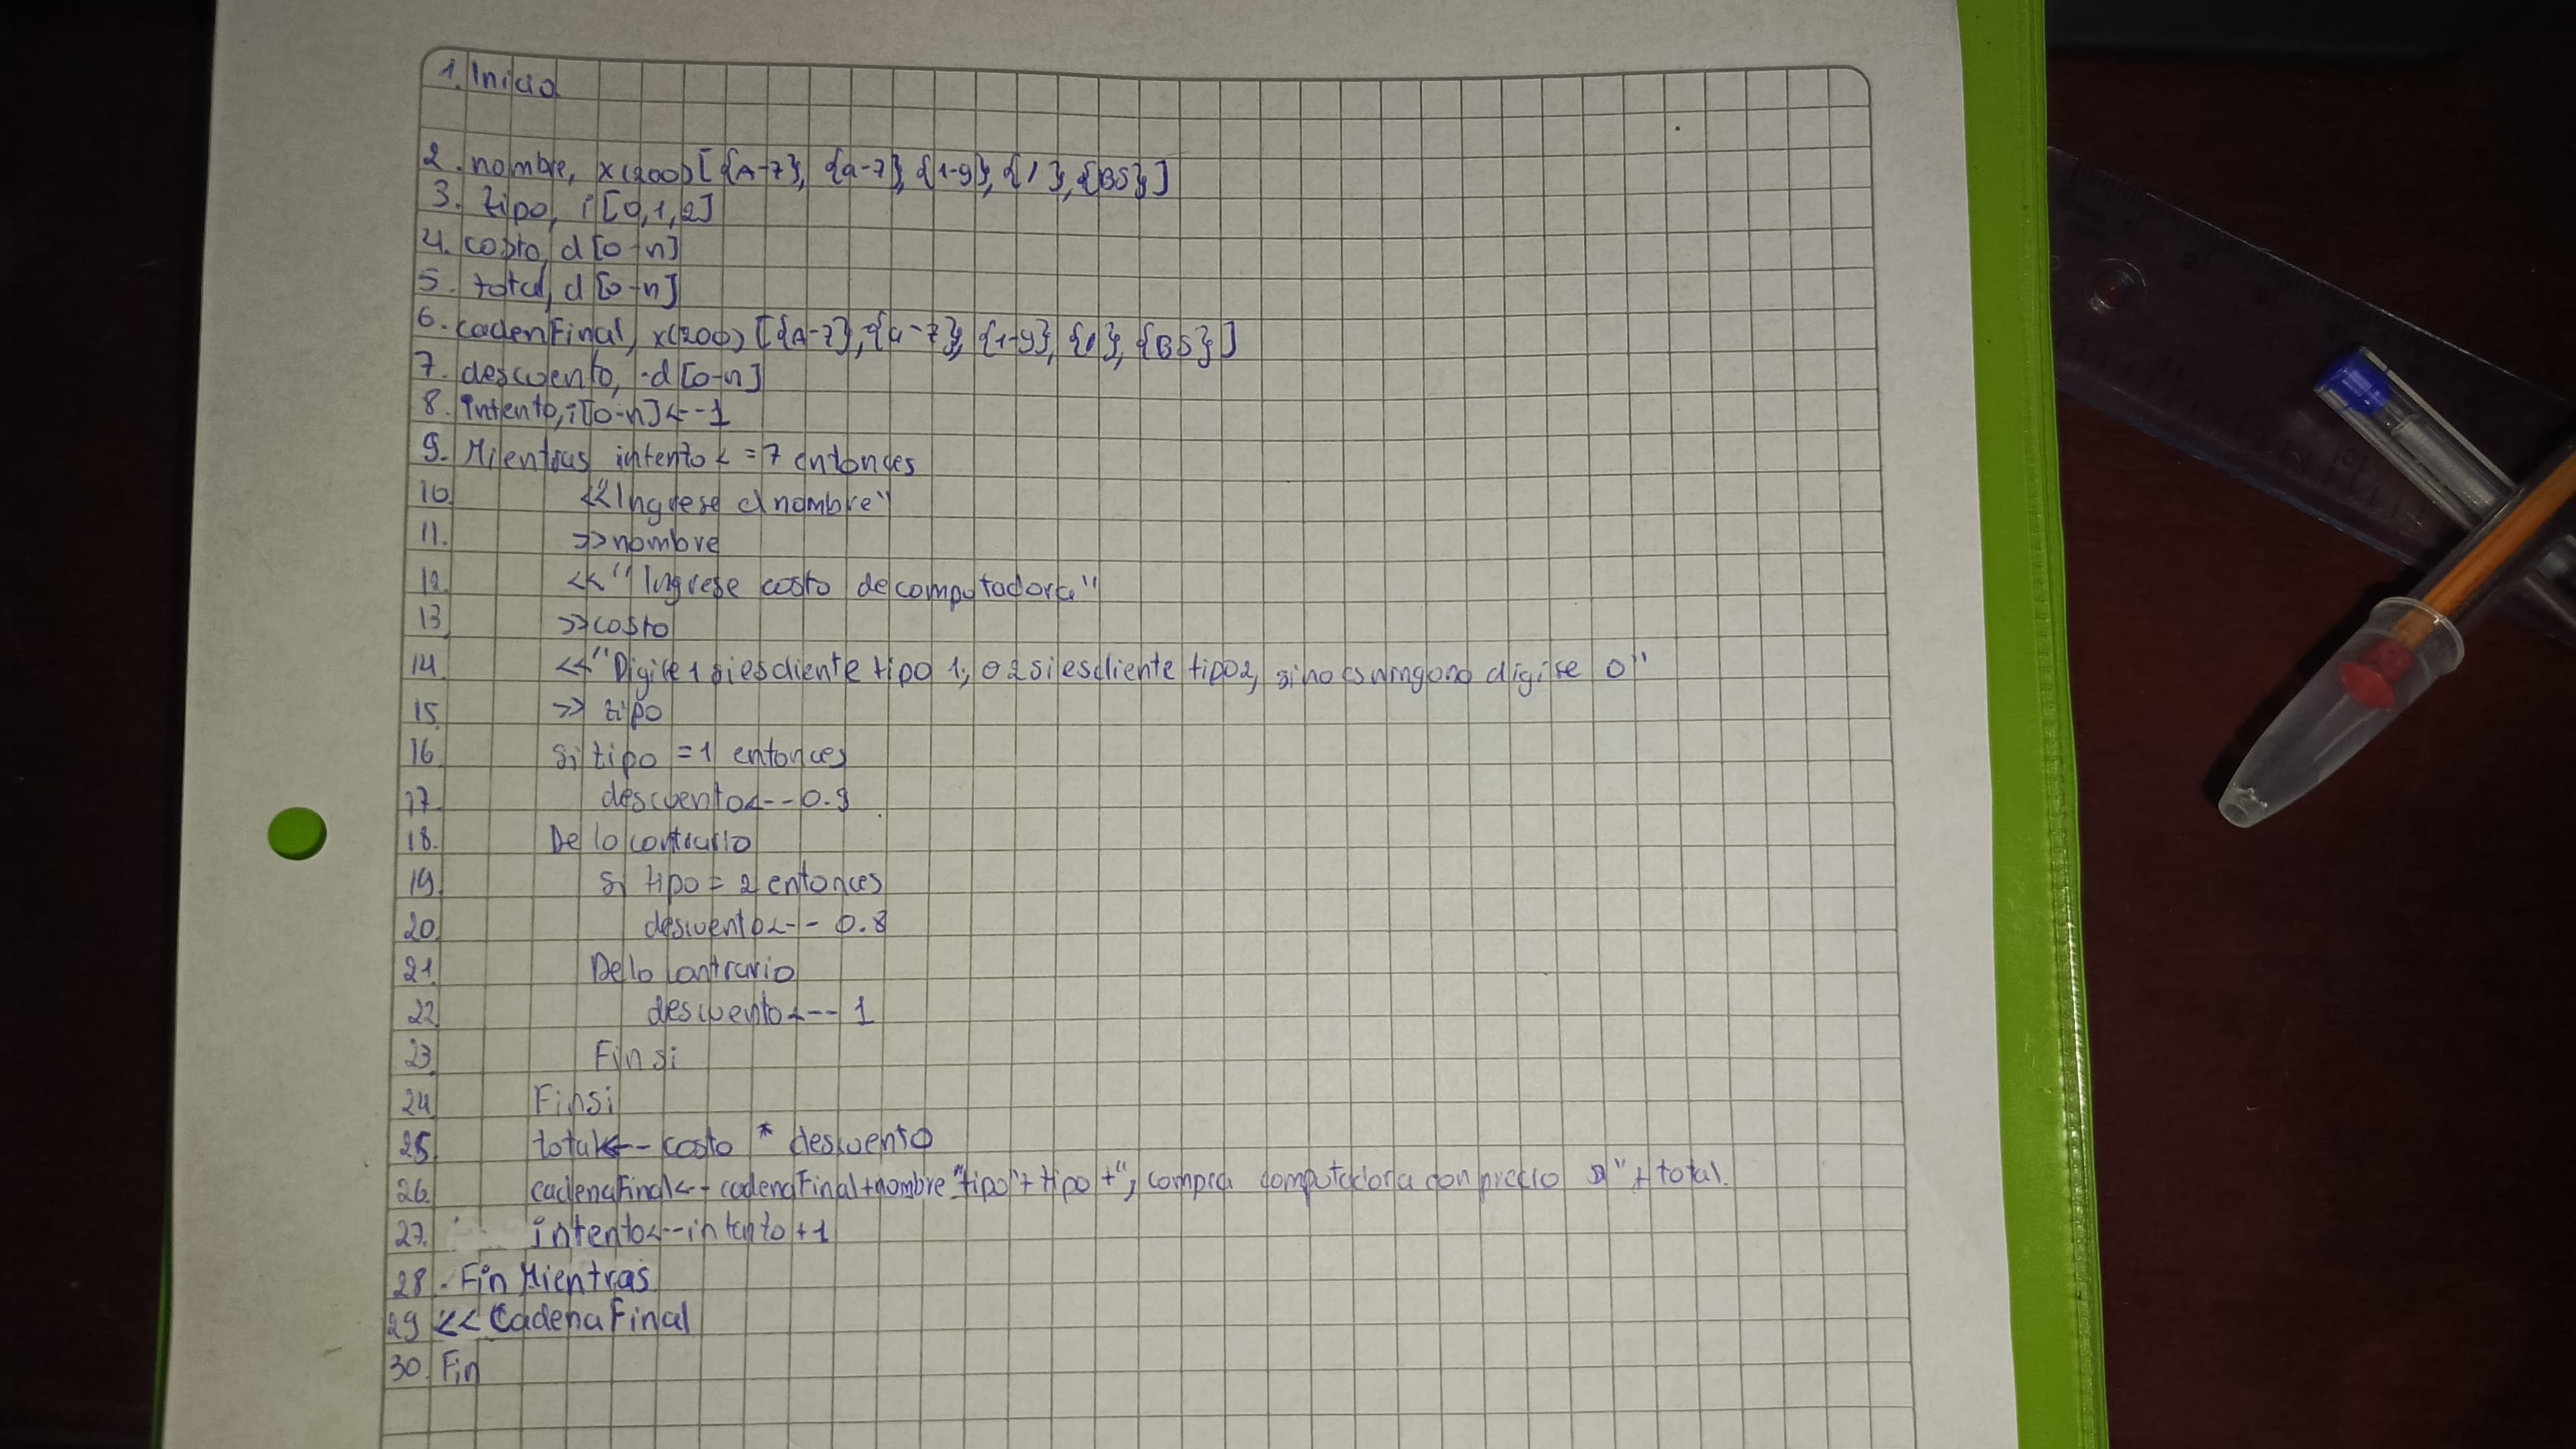 1. Inicio
2. nombre, x(200)[{A-z}, {a-z}, {1-9}, {/}, {BS}]
3. tipo, i[0,1,2]
4. costo, d[0-n]
5. total, d[0-n]
6. cadenFinal, x(200)[{A-z}, {a-z}, {1-9}, {/}, {BS}]
7. descuento, d[0-n]
8. intento, i[0-n]<--1
9. Mientras intento <=7 entonces
10. <<"Ingrese el nombre"
11. >>nombre
12. <<"Ingrese costo de computadora"
13. >>costo
14. <<"Digite 1 si es cliente tipo 1, o 2 si es cliente tipo 2, si no es ninguno digite 0"
15. >> tipo
16. si tipo =1 entonces
17. descuento<--0.9
18. De lo contrario
19. si tipo = 2 entonces
20. descuento<-- 0.8
21. De lo contrario
22. descuento<-- 1
23. Fin si
24. Finsi
25. total<-- costo * descuento
26. cadenaFinal<-- cadenaFinal+nombre "tipo"+ tipo +", compra computadora con precio a" + total.
27. intento<--intento+1
28. Fin Mientras
29 << CadenaFinal
30. Fin